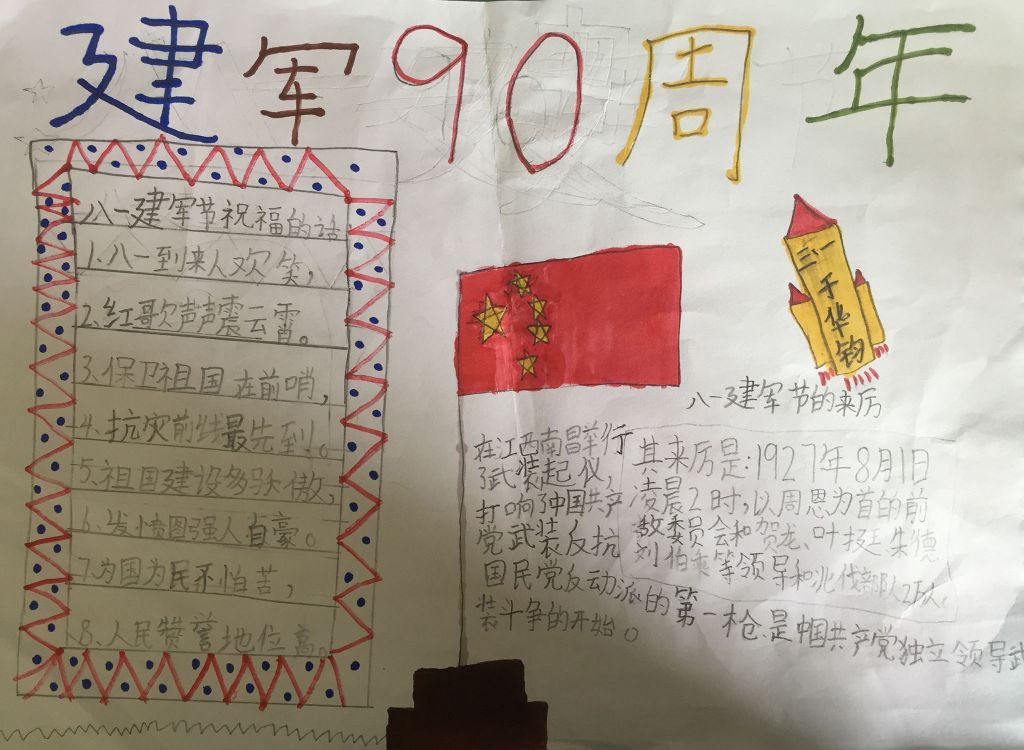 建军90周年
八一建军节祝福的话
1.八一到来人欢笑，
2.红歌声声震云霄。
3.保卫祖国在前哨，
4.抗灾前线最先到。
5.祖国建设多骄傲，
6.发愤图强人自豪。
7.为国为民不怕苦，
8.人民赞誉地位高。
三一
千
华
钧
八一建军节的来厉
其来厉是：1927年8月1日
凌晨2时，以周恩为首的前
敌委员会和贺龙、叶挺朱德
刘伯乘等领导和北伐部队2万人，
在江西南昌举行
了武装起仪，
打响了中国共产
党武装反抗
国民党反动派的第一枪.是中国共产党独立领导武
装斗争的开始。